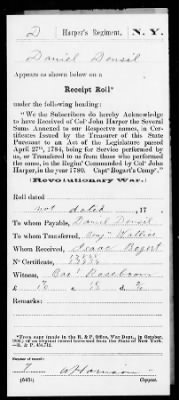 D | Harper's Regiment, | N. Y.
Daniel Densil
Appears as shown below on a
Receipt Roll*
under the following heading:
"We the Subscribers do hereby Acknowledge
to have Received of Colº John Harper the Several
Sums Annexed to our Respective names, in Cer-
tificates Issued by the Treasurer of this State
Pursuant to an Act of the Legislature passed
April 27th, 1784, being for Service performed by
us, or Transferred to us from those who performed
the same, in the Regimt Commanded by Colº John
Harper, in the year 1780. Captn Bogart's Compy."
(Revolutionary War.)
Roll dated
not dated, 17
To whom Payable, Daniel Densil
To whom Transferred, Benjn Wallice
Whom Received, Isaac Bogert
Nº Certificate,
Witness, Roseboom
£
Remarks:
*From copy (made in the R. & P. Office, War Dept., in October,
of an original record borrowed from the State of New York.
—R. & P.
Copyist.